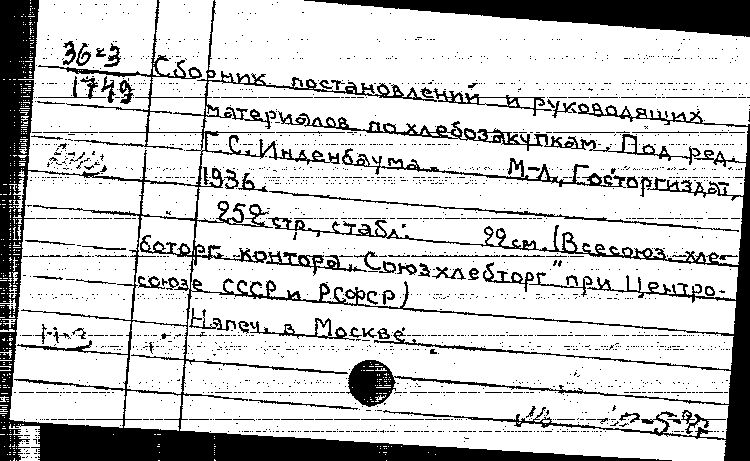 36-3
1749
Сборник постановлений и руководящих
материалов по хлебозакупкам. Под ред.
Г.С. Инденбаума. М.-Л., Госторгиздат,
1936.
252 стр., с табл. 22 см. (Всесоюз. хле-
боторг. контора „Союзхлебторг" при Центро-
союзе СССР и РСФСР)
Напеч. в Москве.